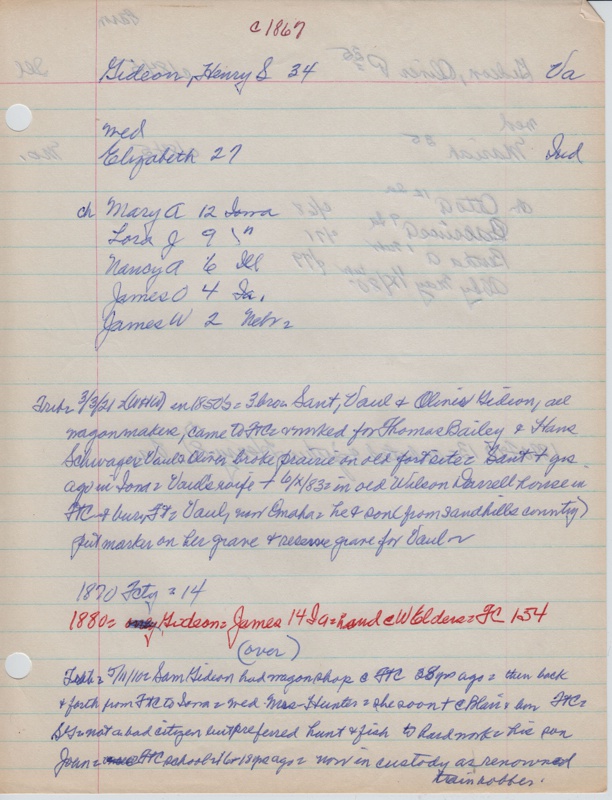 c1867
Gideon, Henry S 34 Va
wed
Elizabeth 27 Ind
ch Mary A 12 Iowa
Lora J 9 "
Nancy A 6 Ill
James O 4 Ia.
James W 2 Nebr =
Trib = 3/3/21 = (WHW) in 1850s = 3 bros Sant, Vaul & Oliver Gideon, all
wagon makers, came to FtC = worked for Thomas Bailey & Hans
Schwager Vaul & Oliver broke prairie on old fort site = Sant + yrs
ago in Iowa = Vaul's wife + 6/x/83 = in old Wilson Darrell house in
FtC & bury Ft = Vaul, now Omaha = he & sons from sandhills country)
put marker on her grave & reserve grave for Vaul
1870 Fcty = 14
1880 = Gideon = James 14 Ia = hand c W Elders = FC 154
(over)
Trib = 5/11/10 = Sam Gideon had wagon shop c FtC 38 yrs ago = then back
& forth from FtC to Iowa = wed Mrs Hunter = she soon + c Plain = bur FtC =
SG = not a bad citizen but preferred hunt & fish to hard work = his son
John = FtC school 16 or 18 yrs ago = now in custody as renowned
train robber.